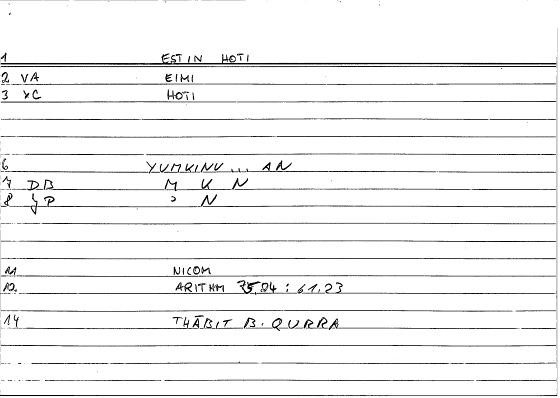 1 ESTIN HOTI
2 VA EIMI
3 XC HOTI
6 YUMKINU ... AN
7 DB M K N
8 YP ɔ N
11 NICOM
12 ARITHM 75,24 : 61,23
14 THĀBIT B. QURRA